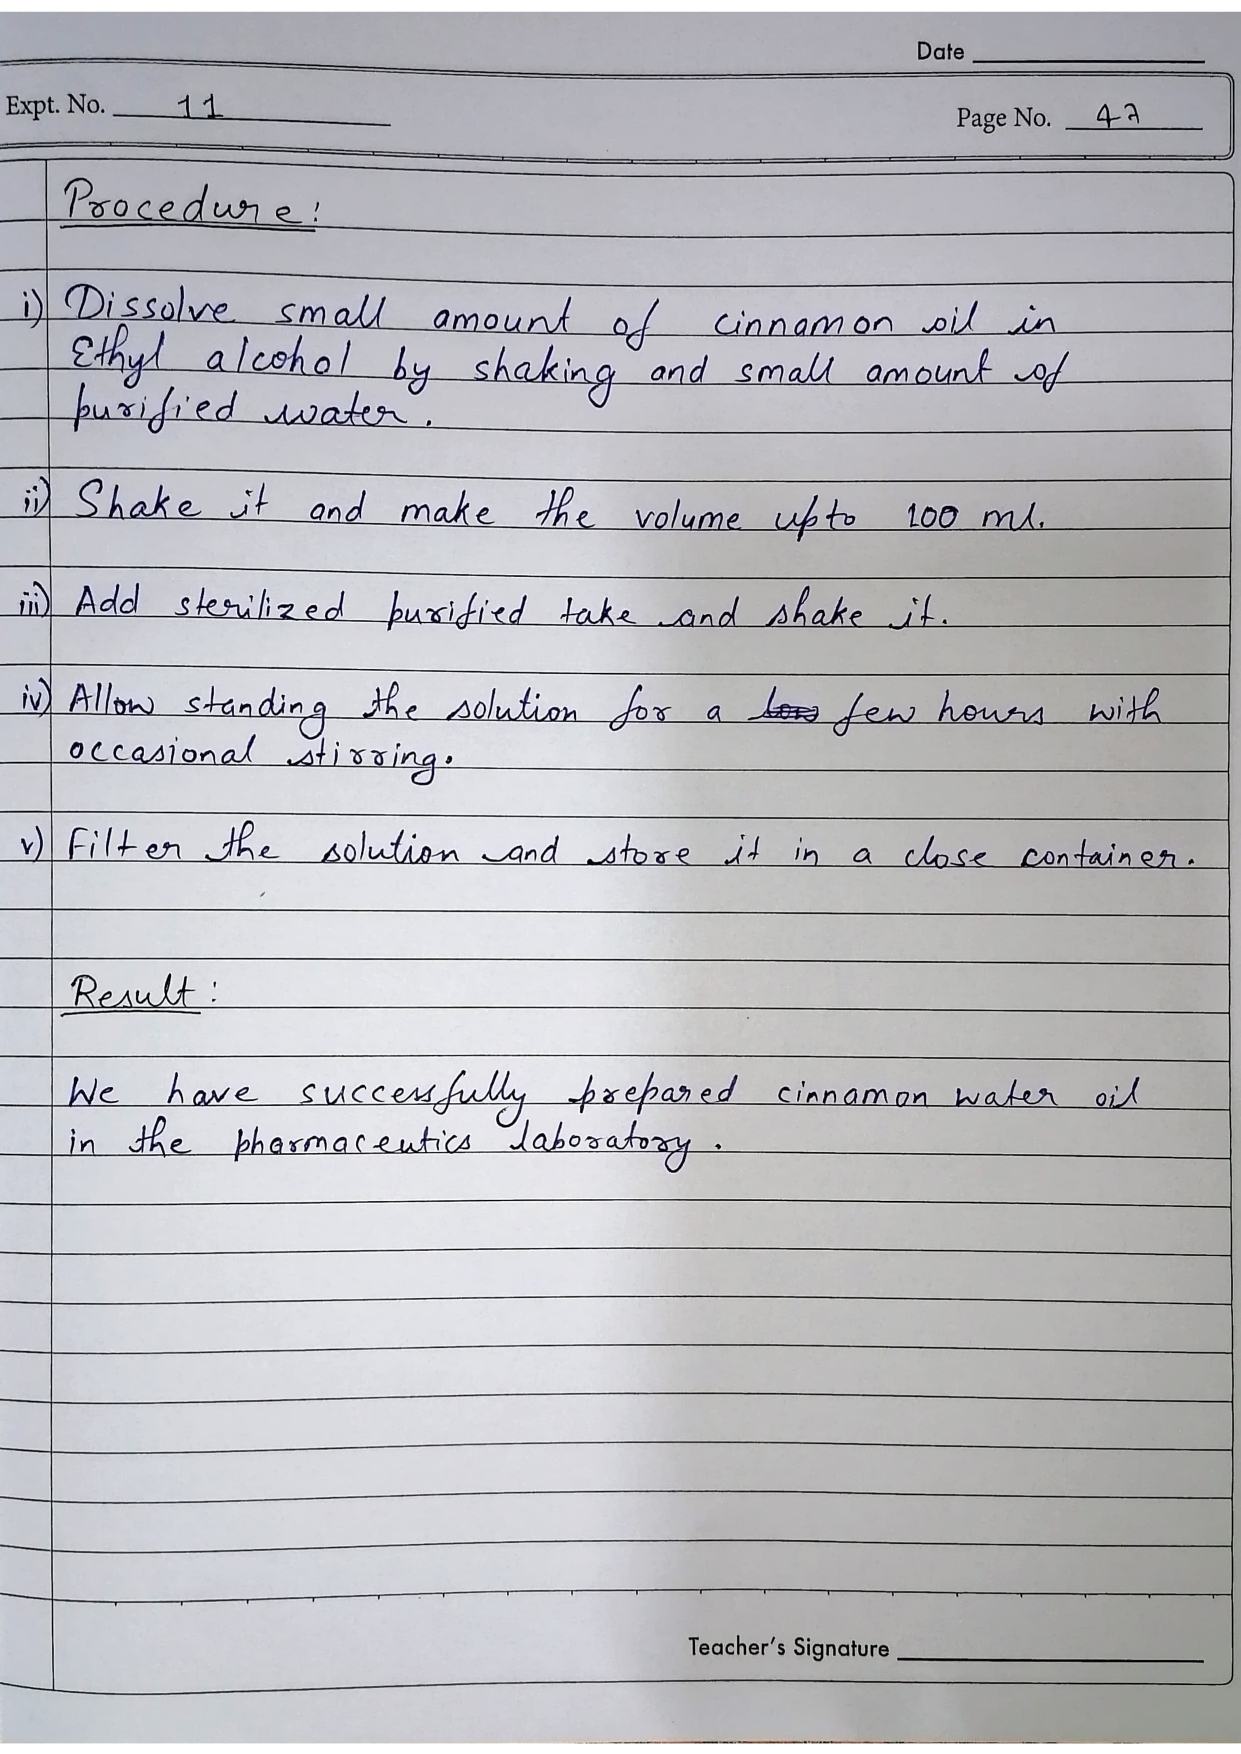 Date
Expt. No. 11
Page No. 47
Procedure:
i) Dissolve small amount of cinnamon oil in
Ethyl alcohol by shaking and small amount of
purified water.
ii) Shake it and make the volume upto 100 ml.
iii) Add sterilized purified take and shake it.
iv) Allow standing the solution for a few hours with
occasional stirring.
v) Filter the solution and store it in a close container.
Result:
We have successfully prepared cinnamon water oil
in the pharmaceutics laboratory.
Teacher's Signature